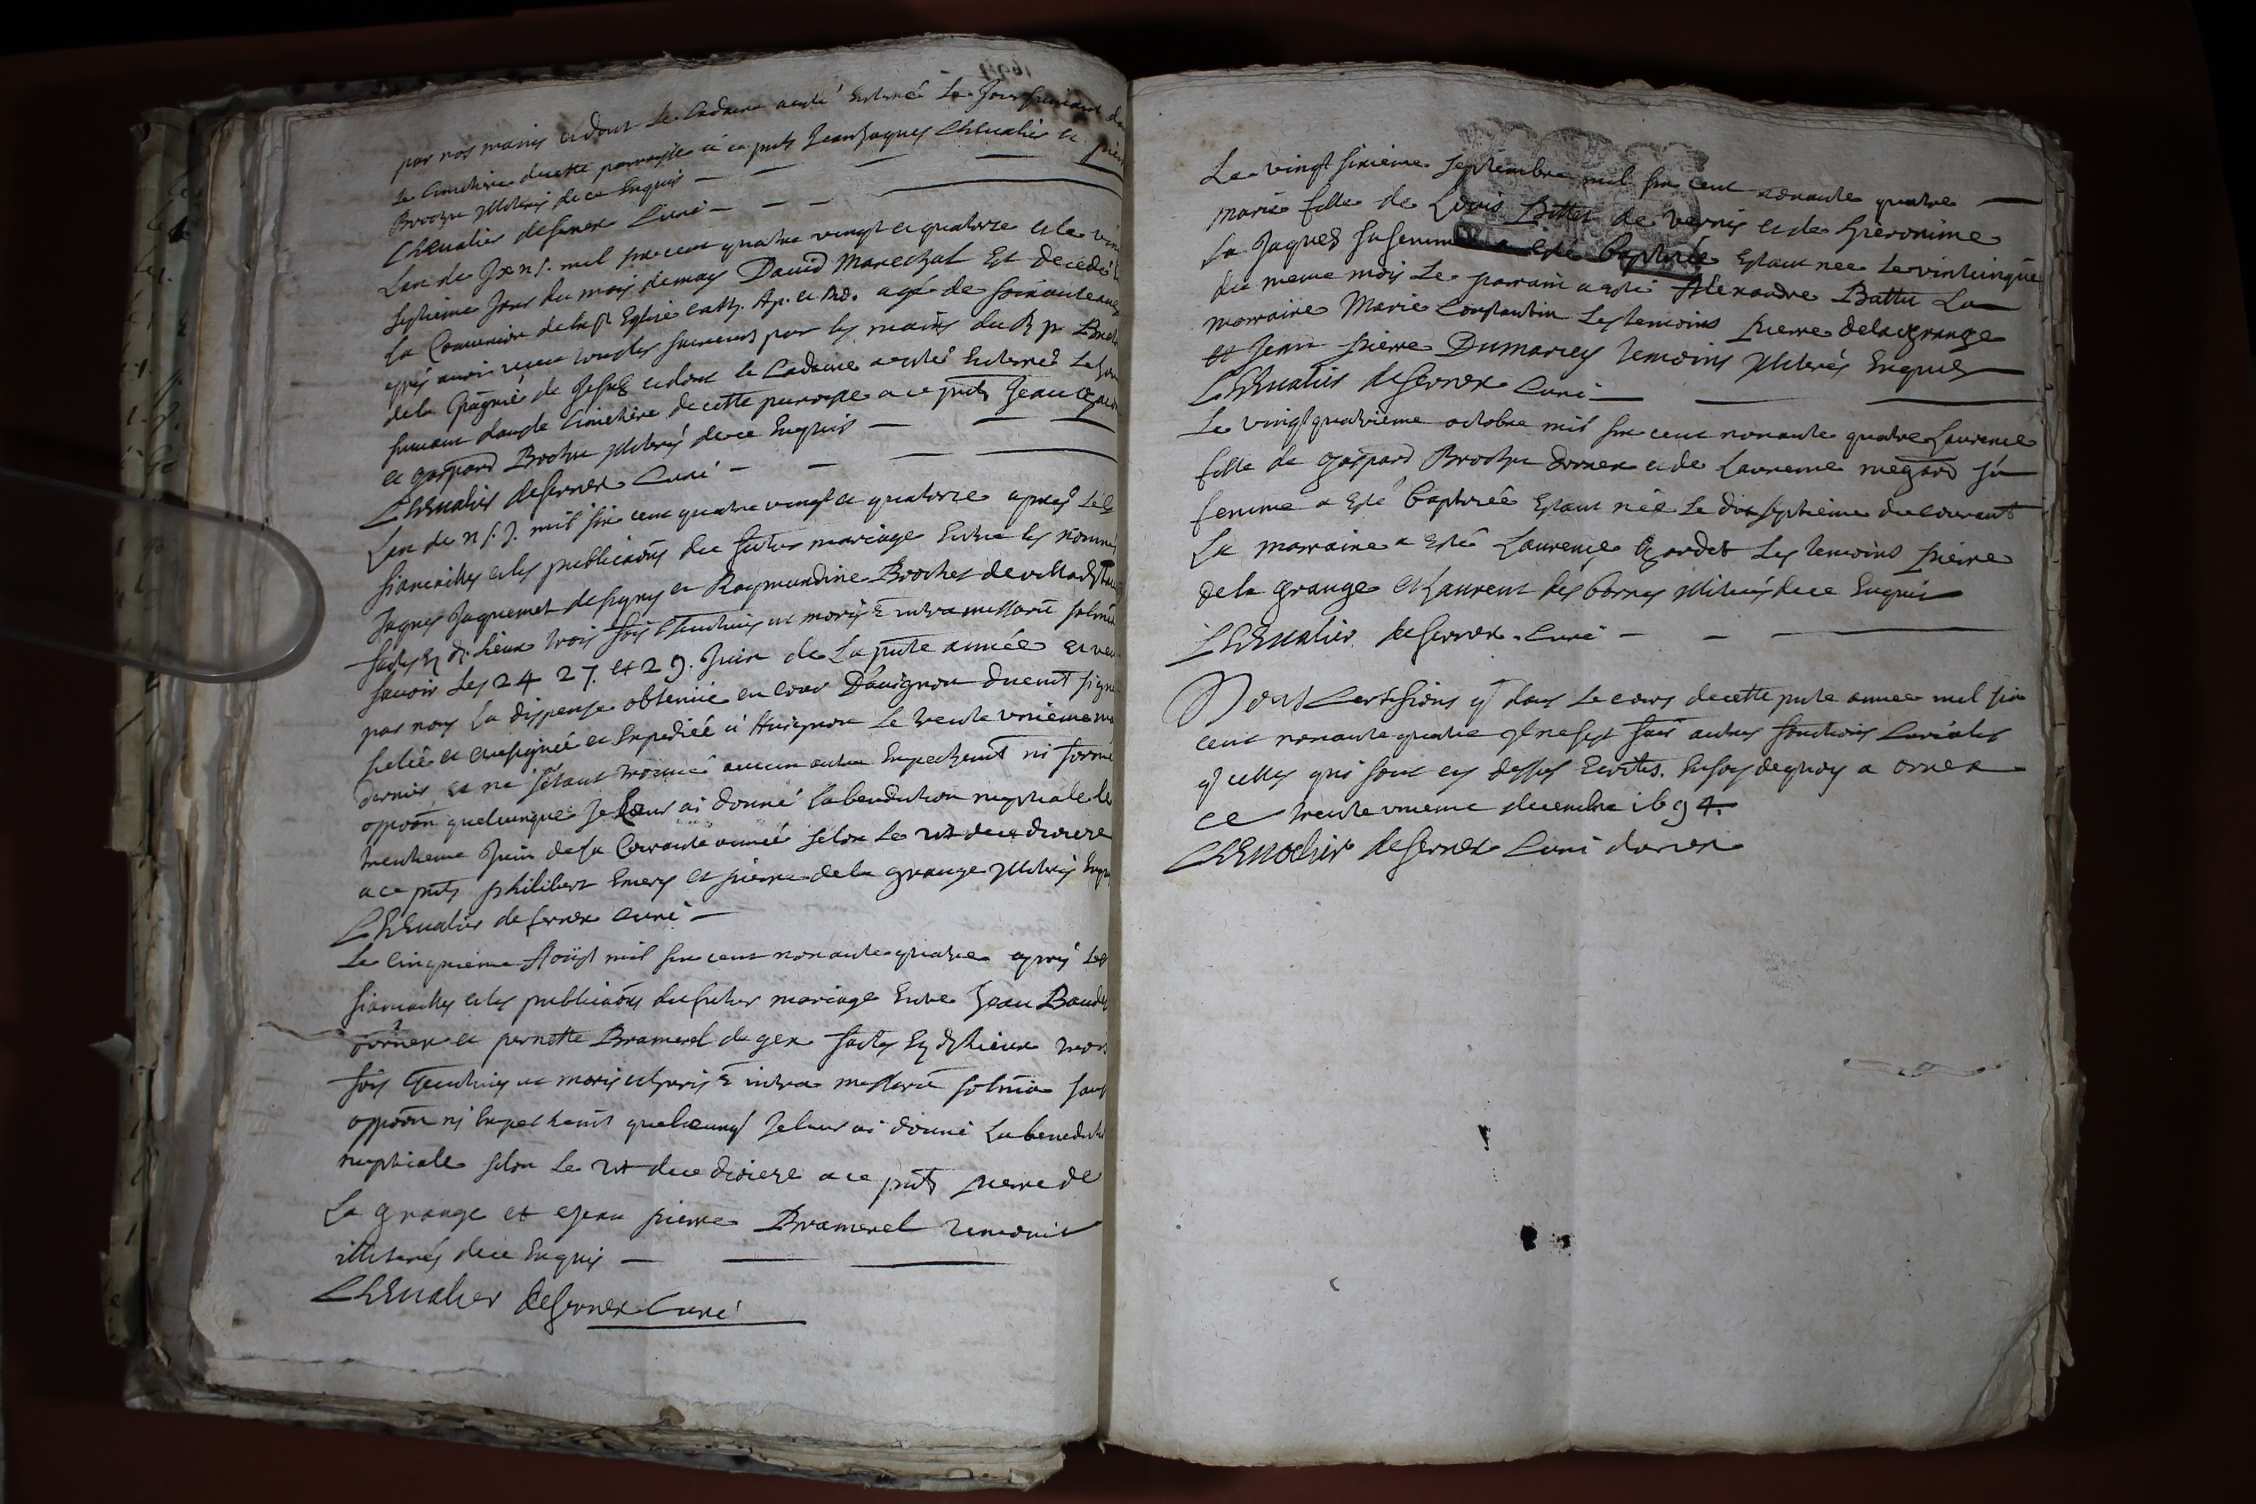 1694
par nos mains et dont le Cadavre a esté Enterré le Jour suivant da
le Cimetiere de cette parroisse a ce pnts Jean Jaques Chevalier et pier
Brochu illiterés de ce Enquis
Chevalier de fernex Curé
L'an de J x n s. mil six cent quatre vingt et quatorze et le vin
septieme Jour du mois de may David Marechal Est decedé
la Comunion de la ste Eglise cath. Ap. et Ro. agé de soixante ans
aprés avoir receu tous les sacrements par les mains du R p
de la Compagnie de Jesus et dont le Cadavre a esté Enterré le Jour
suivant dans le Cimetiere de cette parroisse a ce pnts Jean
et gaspard Brochu illiterés de ce Enquis
Chevalier de fernex Curé
L'an de n s. J. mil six cent quatre vingt et quatorze aprés les
fiancailles et les publicaons du futur mariage Entre les nommés
Jaques Jaquemet de signy et Raymundine Brochet de
faictes Es d. lieux trois fois ut moris E intra missaru solmia
savoir les 24 27. et 29. Juin de la pnte année et veu
par nous la dispense obtenüe en cour D'avignon duemt signé
selée et ensignée et Expediée a Avignon le trente unieme
dernier et ne s'estant trouvé aucun autre Empechemt ni formé
oppoon quelcunque Je leur ai donné la benediction nuptiale le
trentieme Juin de la Courante année selon le rit de ce diocese
a ce pnts philibert Emery et pierre de la grange illiterés Enquis
Chevalier de fernex Curé
Le Cinquieme Aoust mil six cent nonante quatre aprés les
fiancailles et les publicaons du futur mariage Entre Jean Baudet
d'ornex et pernette Bramerel de gex faictes Es d. lieux trois
fois ut moris E intra missaru solmia sans
oppoon ni Empechemt quelcunq Je leur ai donné la benedictio
nuptiale selon le rit de ce diocese a ce pnts pierre de
la grange et Jean pierre Bramerel temoins
illiterés de ce Enquis
Chevalier de fernex Curé
Le vingt sixieme septembre mil six cent nonante quatre
marie fille de Louis Battu de vernis et de hieronime
la Jaques sa femme a esté baptisée Estant nee le vintcinquie
du meme mois le parrain a esté Alexandre Battu La
marraine Marie Constantin Les temoins pierre de la grange
et Jean pierre Dumarcey temoins illiterés Enquis
Chevalier de fernex Curé
Le vingt quatrieme octobre mil six cent nonante quatre Laurence
fille de gaspard Brochu dornex et de laurence megard sa
femme a Esté baptisée Estant née le dix septieme du courant
La marraine a Esté Laurence gardet Les temoins pierre
de la grange et Laurent des bornes illiterés de ce Enquis
Chevalier de fernex Curé
Nous Certifions q dans le cours de cette pnte année mil six
cent nonante quatre Je nesest fait autres fonctions Curiales
q celles qui sont cy dessus Ecrites. En foy de quoy a ornex
ce trente unieme decembre 1694.
Chevalier de fernex Curé dornex